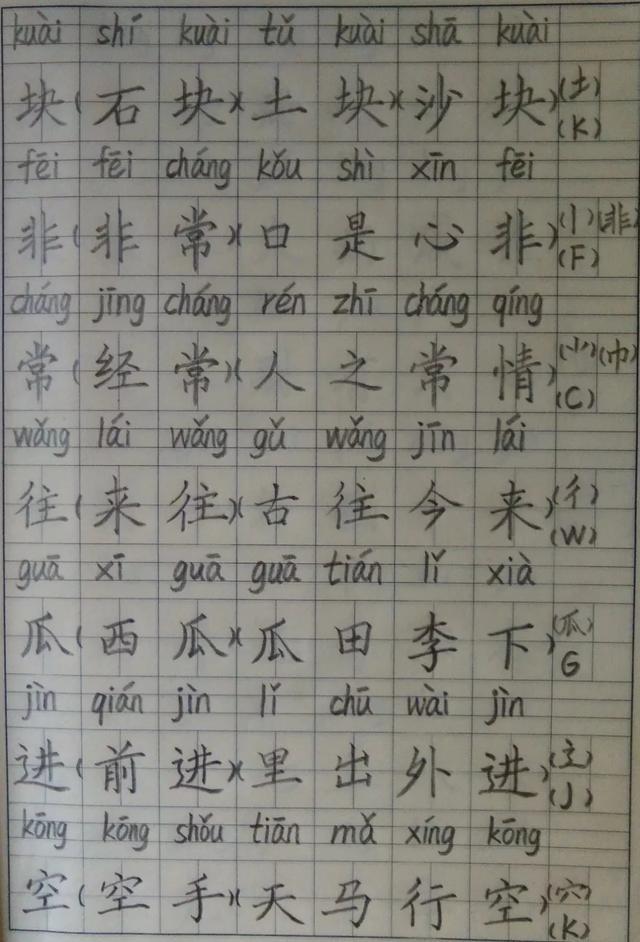 kuài shí kuài tǔ kuài shā kuài
块(石块)(土块)(沙块)(土)(K)
fēi fēi cháng kǒu shì xīn fēi
非(非常)(口是心非)(丨)(非)(F)
cháng jīng cháng rén zhī cháng qíng
常(经常)(人之常情)(⺌)(巾)(C)
wǎng lái wǎng gǔ wǎng jīn lái
往(来往)(古往今来)(彳)(W)
guā xī guā guā tián lǐ xià
瓜(西瓜)(瓜田李下)(瓜)G
jìn qián jìn lǐ chū wài jìn
进(前进)(里出外进)(辶)(J)
kōng kōng shǒu tiān mǎ xíng kōng
空(空手)(天马行空)(穴)(K)